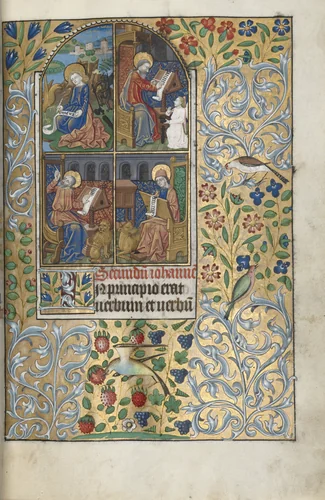 Secundū iohanne
In principio erat
uerbum et uerbū